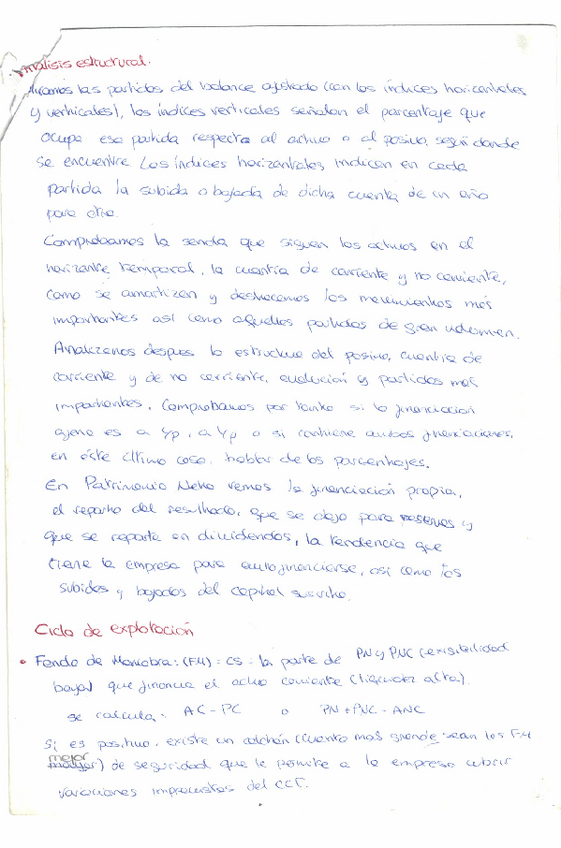 Análisis estructural.
Miramos las partidas del balance ajustado (con los índices horizontales
y verticales), los índices verticales señalan el porcentaje que
ocupa esa partida respecto al activo o al pasivo, según donde
se encuentre. Los índices horizontales indican en cada
partida la subida o bajada de dicha cuenta de un año
para otro.
Comprobamos la senda que siguen los activos en el
horizonte temporal, la cuantía de corriente y no corriente,
como se amortizan y destacamos los movimientos más
importantes así como aquellas partidas de gran volumen.
Analizamos después la estructura del pasivo, cuantía de
corriente y de no corriente, evolución y partidas más
importantes. Comprobamos por tanto si la financiación
ajena es a
o si contiene ambas financiaciones,
en éste último caso, hablar de los porcentajes.
En Patrimonio Neto vemos la financiación propia,
el reparto del resultado, que se dejo para reservas y
que se reparte en dividendos, la tendencia que
tiene la empresa para autofinanciarse, así como las
subidas y bajadas del capital suscrito.
Ciclo de explotación
• Fondo de Maniobra: (FM) = es la parte de PN y PNC (exigibilidad
baja) que financia el activo corriente (liquidez alta).
se calcula: AC - PC o PN + PNC - ANC
Si es positivo, existe un colchón (cuanto más grande sean los FM
mejor) de seguridad que le permite a la empresa cubrir
variaciones imprevistas del CCT.